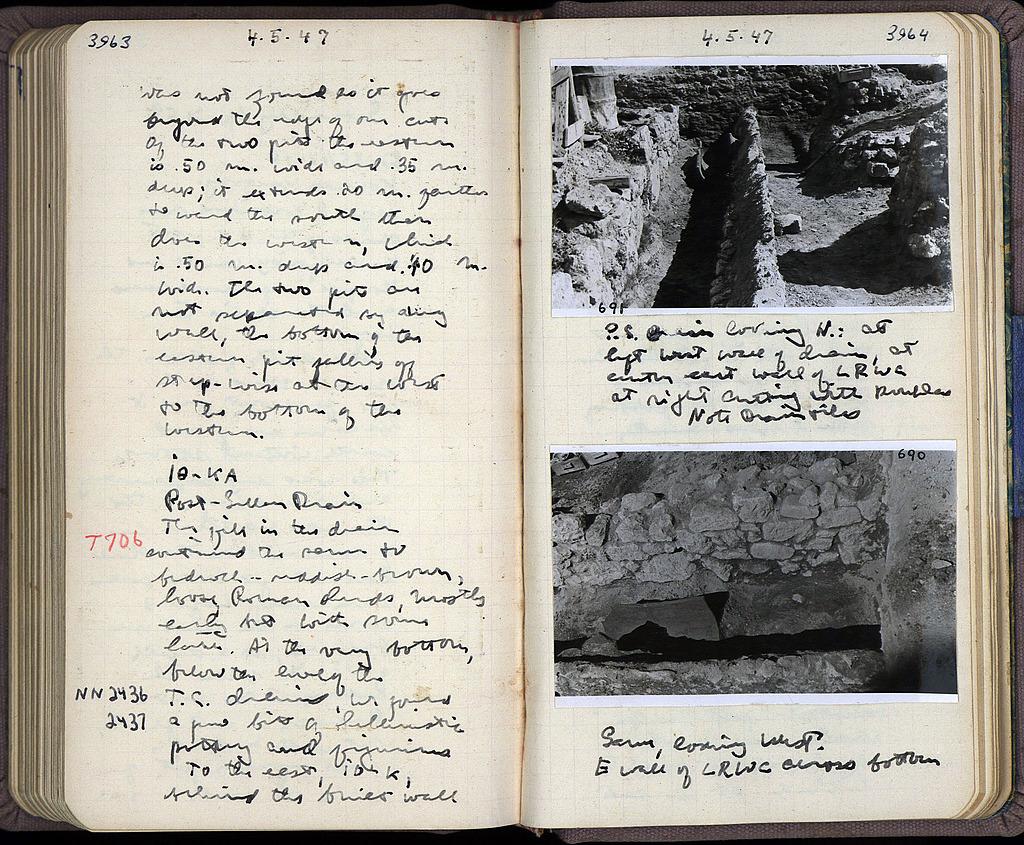 3963
4.5.47
was not found as it goes
beyond the edge of our cuts
Of the two pits the eastern
is .50 m. wide and .35 m.
deep; it extends .20 m. farther
toward the south than
does the western, which
is .50 m. deep and .40 m.
wide. The two pits are
not separated by any
wall, the bottom of the
eastern pit falling off
step-wise at the west
to the bottom of the
western.
ΙΘ-ΚΑ
Post-Sullan Drain
T706
The fill in the drain
continued the same to
bedrock - reddish-brown,
loose Roman sherds, mostly
early but with some
later. At the very bottom,
below the level of the
NN 2436
T.C. drains, we found
2437
a few bits of Hellenistic
pottery and figurines
To the east, ΙΘ-Κ,
behind the built wall
4.5.47
3964
691
P.S. Drain looking N.: at
left west wall of drain, at
center east wall of LRWC
at right cutting with
Note Drain tiles
690
Same, looking West.
E wall of LRWC across bottom